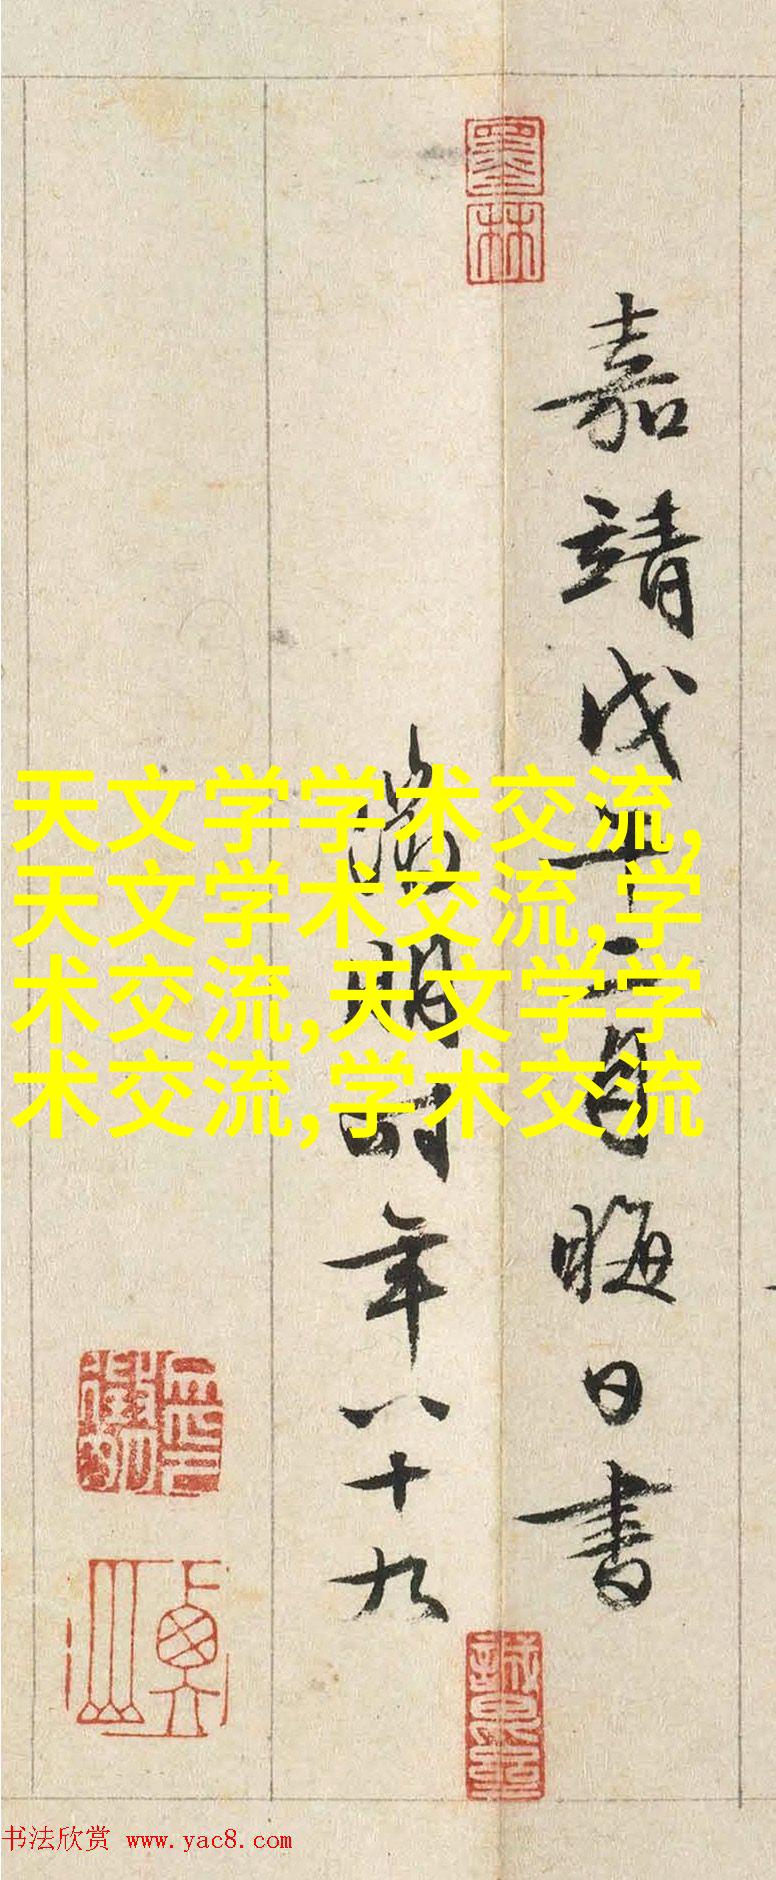 墨林
嘉靖戊午二月晦日書
徵明时年八十九
天文学学术交流,
天文学术交流,学
术交流,天文学学
术交流,学术交流
书法欣赏 www.yac8.com